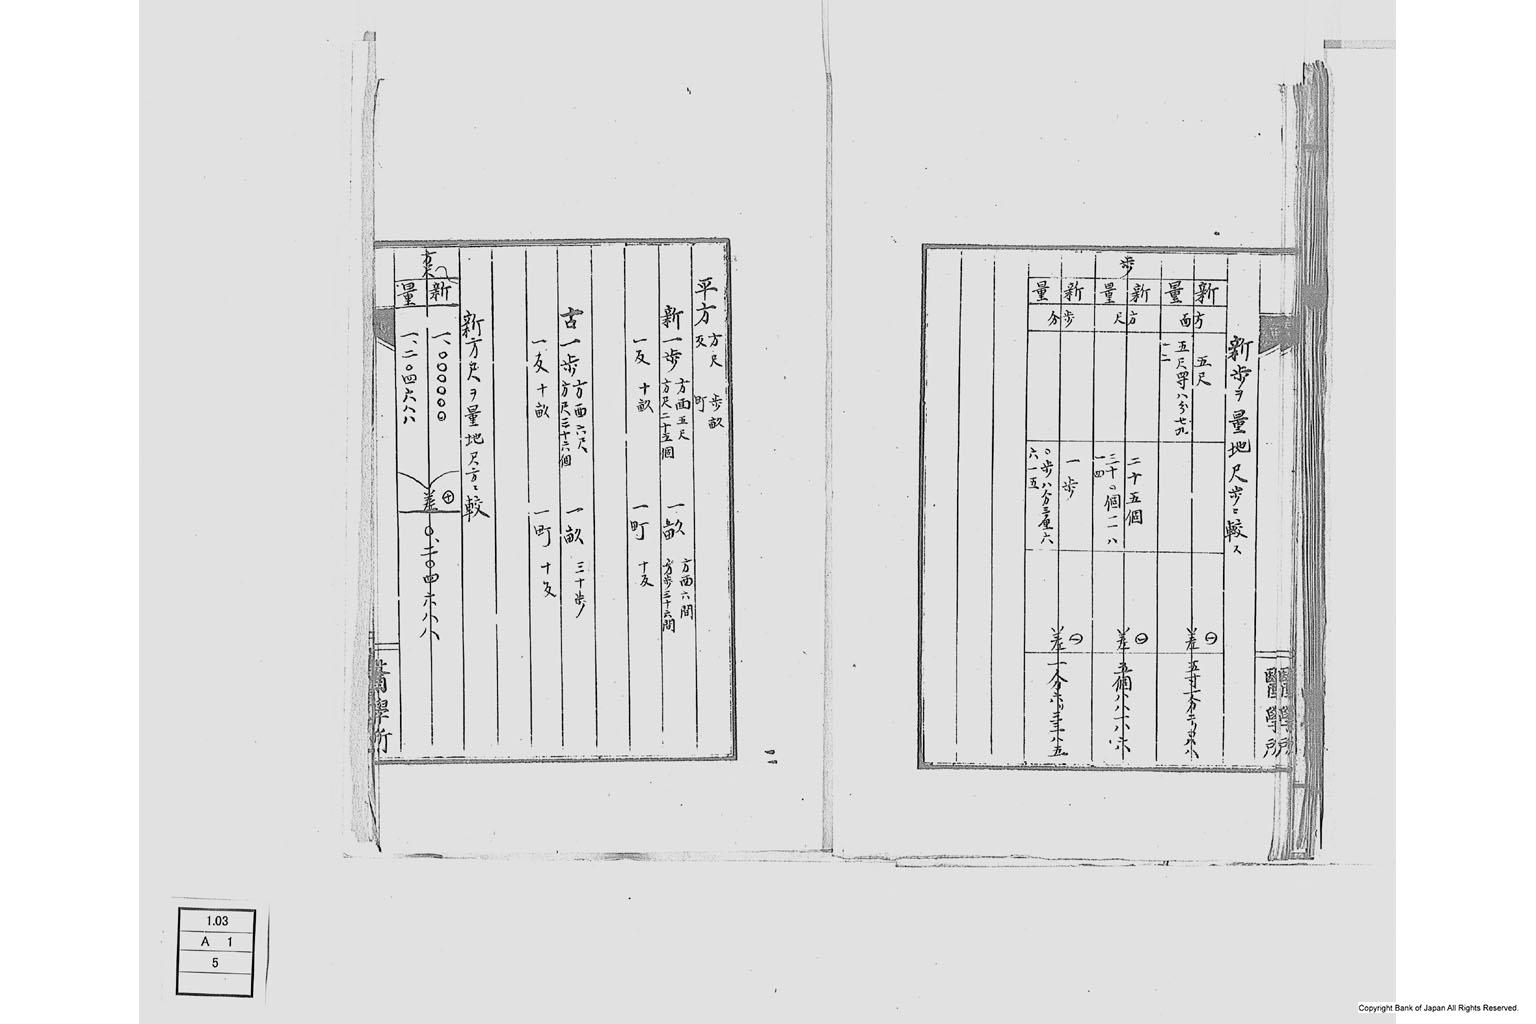 新歩ヲ量地尺歩ニ較ス
歩
新量 方面
五尺
五尺四寸八分七九一二
㊀差 五寸一分二〇八八
新量 方尺
二十五個
三十〇個一一八一四
㊀差 五個八八一八六
新量 歩分
一歩
〇歩八分三厘六六一五
㊀差 一分六〇三三八五
醫學所
平方 方尺 歩畝
反 町
新一歩 方面五尺
方尺二十五個
一畝 方面六間
方歩三十六間
一反 十畝
一町 十反
古一歩 方面六尺
方尺三十六個
一畝 三十歩
一反 十畝
一町 十反
新方尺ヲ量地尺方ニ較
方尺
新 一、〇〇〇〇〇〇
量 一、二〇四六八八
㊉差 〇、二〇四六八八
醫學所
1.03
A 1
5
Copyright Bank of Japan All Rights Reserved.